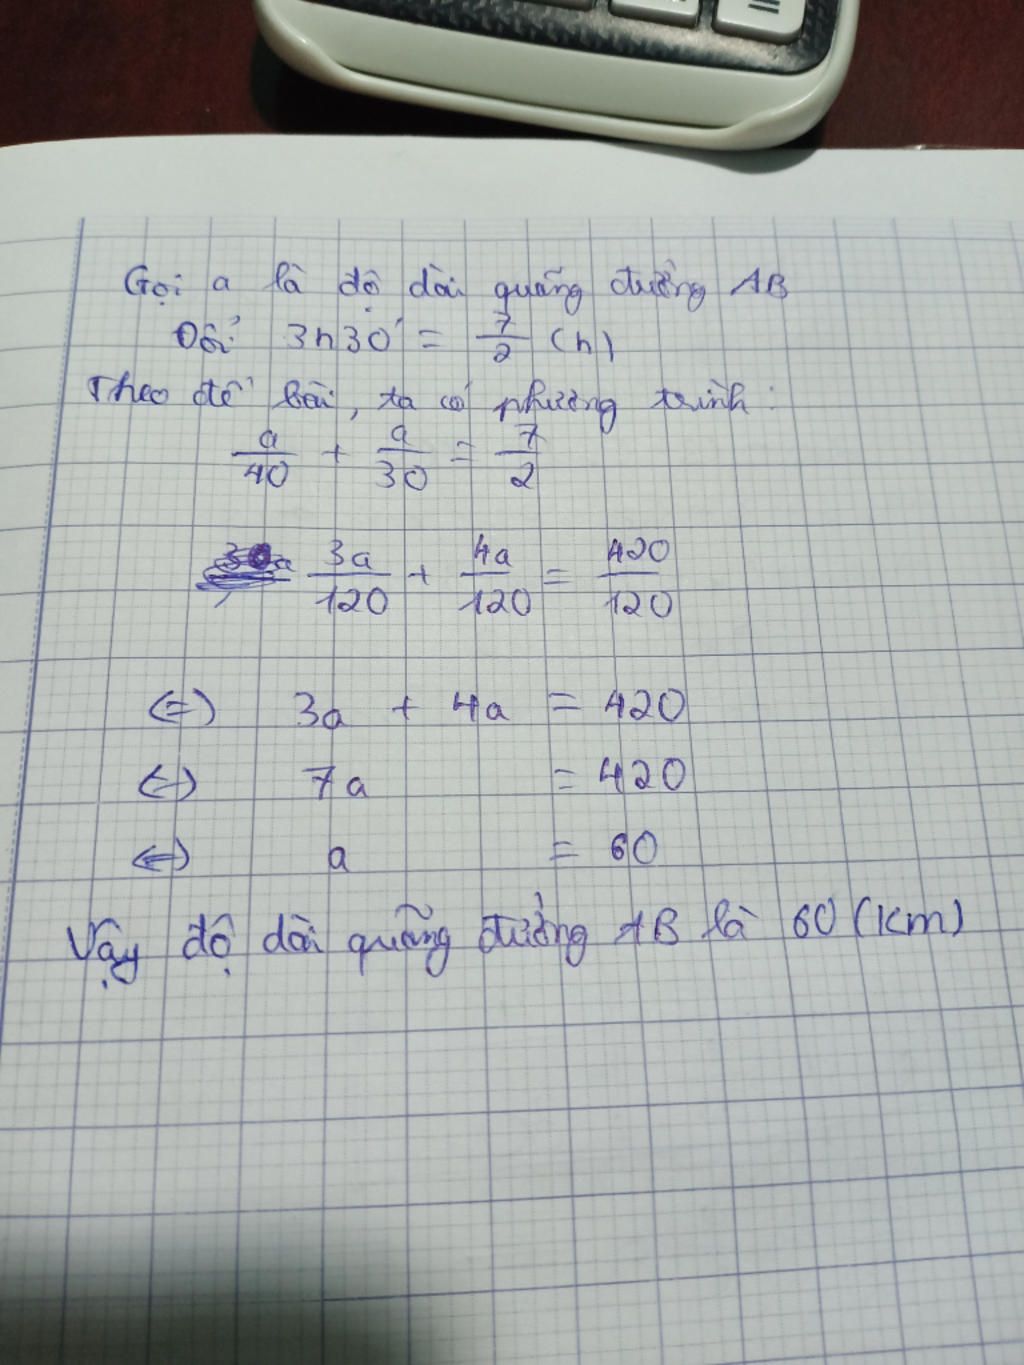 Gọi a là độ dài quãng đường AB
Đổi 3h30' = 7/2 (h)
Theo đề bài, ta có phương trình:
a/40 + a/30 = 7/2
3a/120 + 4a/120 = 420/120
(=) 3a + 4a = 420
<=> 7a = 420
<=> a = 60
Vậy độ dài quãng đường AB là 60 (km)